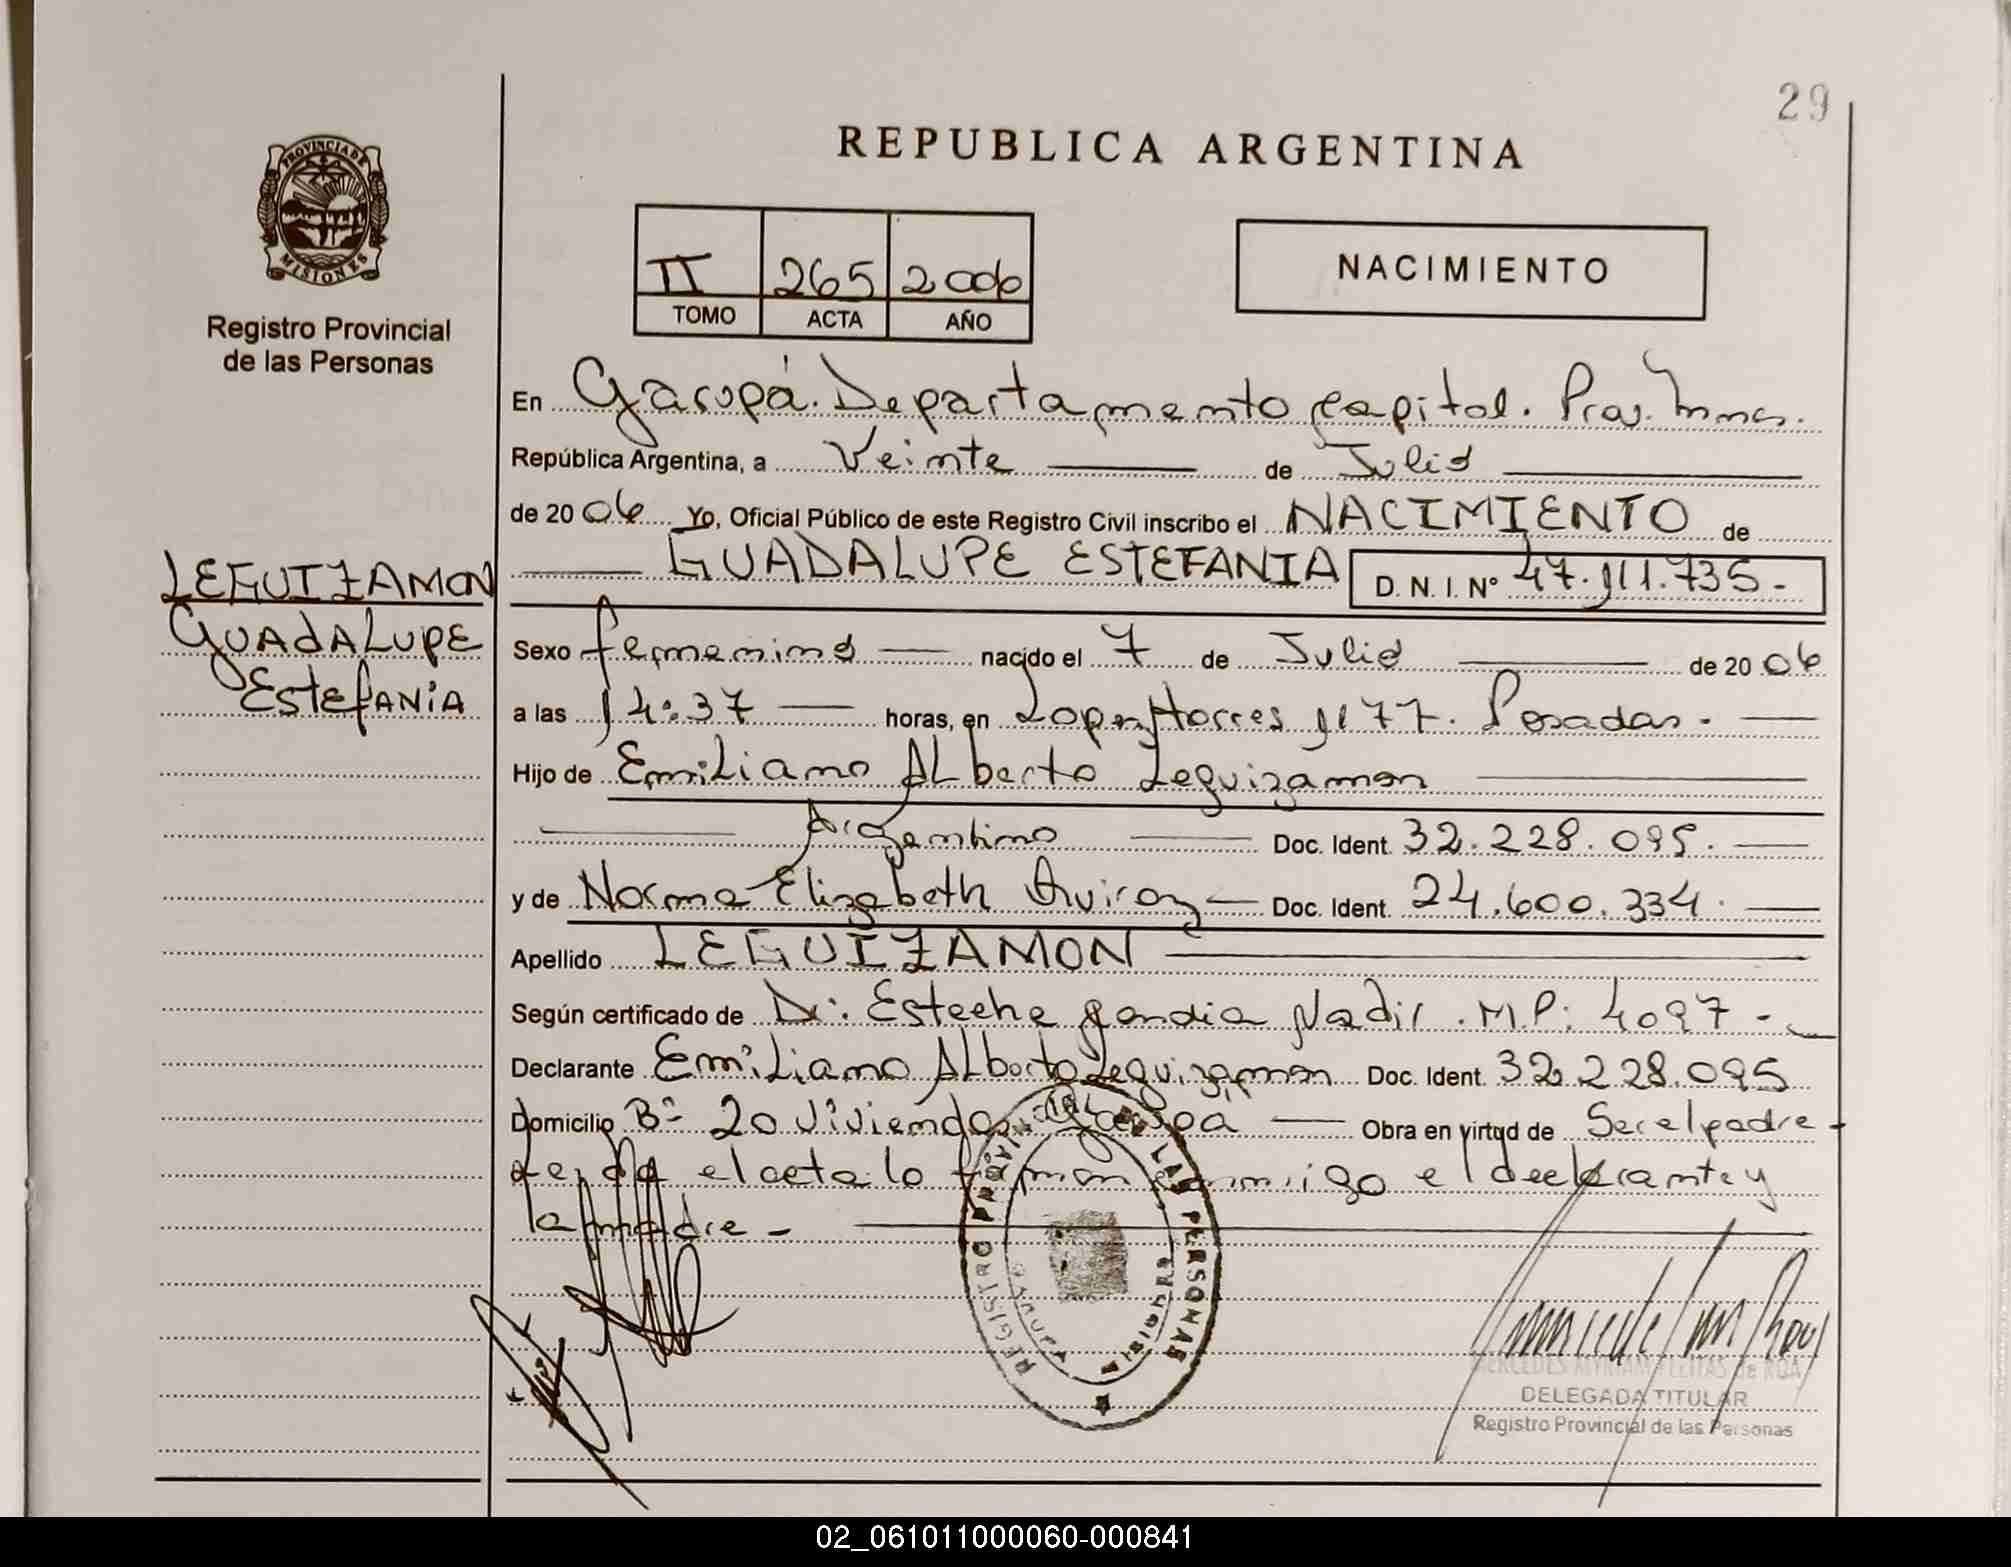 29
REPUBLICA ARGENTINA
PROVINCIA DE
MISIONES
Registro Provincial
de las Personas
II 265 2006
TOMO ACTA AÑO
NACIMIENTO
En Garupá. Departamento Capital. Prov. Mnes.
República Argentina, a Veinte de Julio
de 2006 Yo, Oficial Público de este Registro Civil inscribo el NACIMIENTO de
GUADALUPE ESTEFANIA D. N. I. N° 47.111.735.-
LEGUIZAMON
GUADALUPE
ESTEFANIA
Sexo femenino nacido el 7 de Julio de 2006
a las 14:37 horas, en Lopez Torres 1177. Posadas.
Hijo de Emiliano Alberto Leguizamon
Argentino Doc. Ident. 32.228.095.
y de Norma Elizabeth Doc. Ident. 24.600.334.
Apellido LEGUIZAMON
Según certificado de Dr. Esteche Gandia Nadir. M.P: 4097.-
Declarante Emiliano Alberto Leguizamon Doc. Ident. 32.228.095
Domicilio B° 20 Viviendas Garupa Obra en virtud de Ser el padre-
Leida el acta lo firman conmigo el declarante y
la madre-
REGISTRO PROVINCIAL DE LAS PERSONAS
MISIONES
MERCEDES MYRIAM FLEITAS de ROA
DELEGADA TITULAR
Registro Provincial de las Personas
02_061011000060-000841